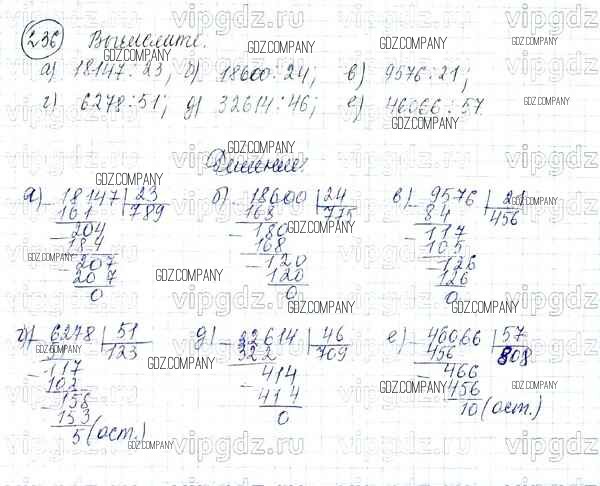 236 Вычислите.
а) 18147 : 23; б) 18600 : 24; в) 9576 : 21;
г) 6278 : 51; д) 32614 : 46; е) 46066 : 57.
Решение:
а) 18147 | 23 б) 18600 | 24 в) 9576 | 21
161 789 168 775 84 456
204 180 117
184 168 105
207 120 126
207 120 126
0 0 0
г) 6278 | 51 д) 32614 | 46 е) 46066 | 57
123 322 709 456 808
117 414 466
102 414 456
158 0 10 (ост.)
153
5 (ост.)
vipgdz.ru
GDZ.COMPANY